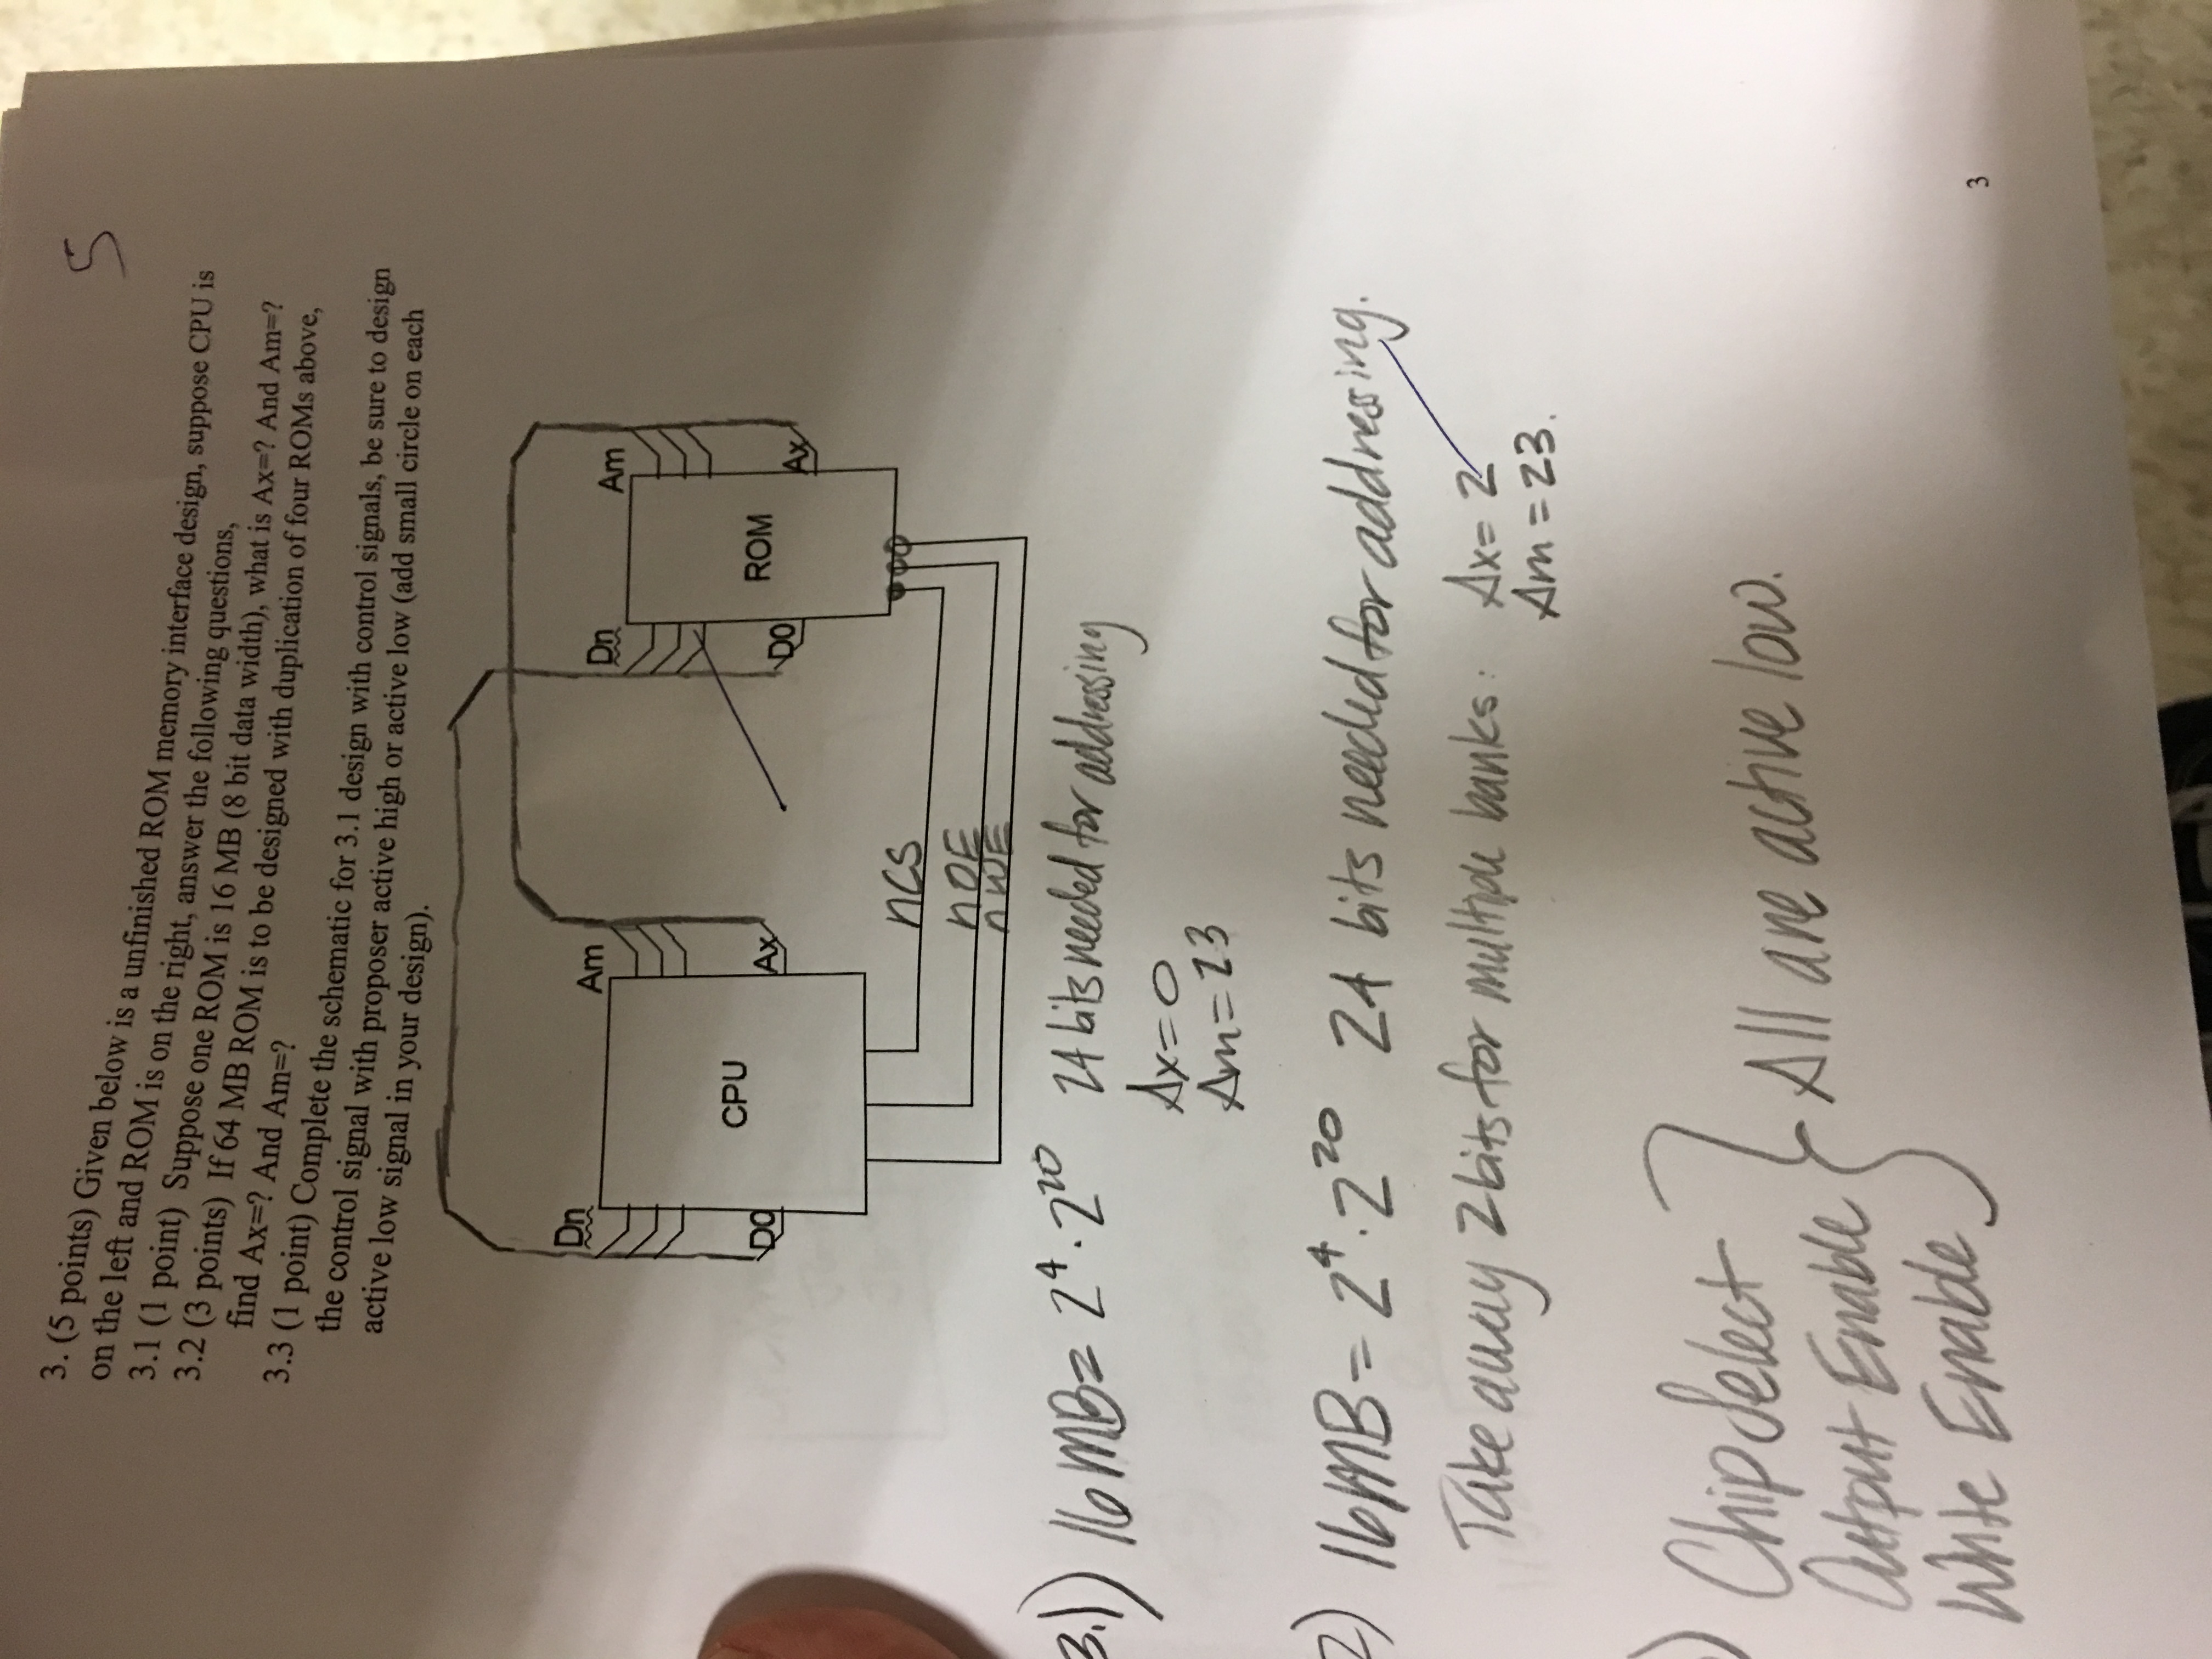 5
3. (5 points) Given below is a unfinished ROM memory interface design, suppose CPU is
on the left and ROM is on the right, answer the following questions,
3.1 (1 point) Suppose one ROM is 16 MB (8 bit data width), what is Ax=? And Am=?
3.2 (3 points) If 64 MB ROM is to be designed with duplication of four ROMs above,
find Ax=? And Am=?
3.3 (1 point) Complete the schematic for 3.1 design with control signals, be sure to design
the control signal with proposer active high or active low (add small circle on each
active low signal in your design).
Dn Am Dn Am
CPU ROM
D0 Ax D0 Ax
nCS
nOE
nWE
3.1) 16MB= 2⁴·2²⁰ 24 bits needed for addressing
Ax=0
Am=23
2) 16MB= 2⁴·2²⁰ 24 bits needed for addressing.
Take away 2 bits for multiple banks: Ax= 2
Am=23.
) Chip Select
Output Enable } All are active low.
Write Enable
3